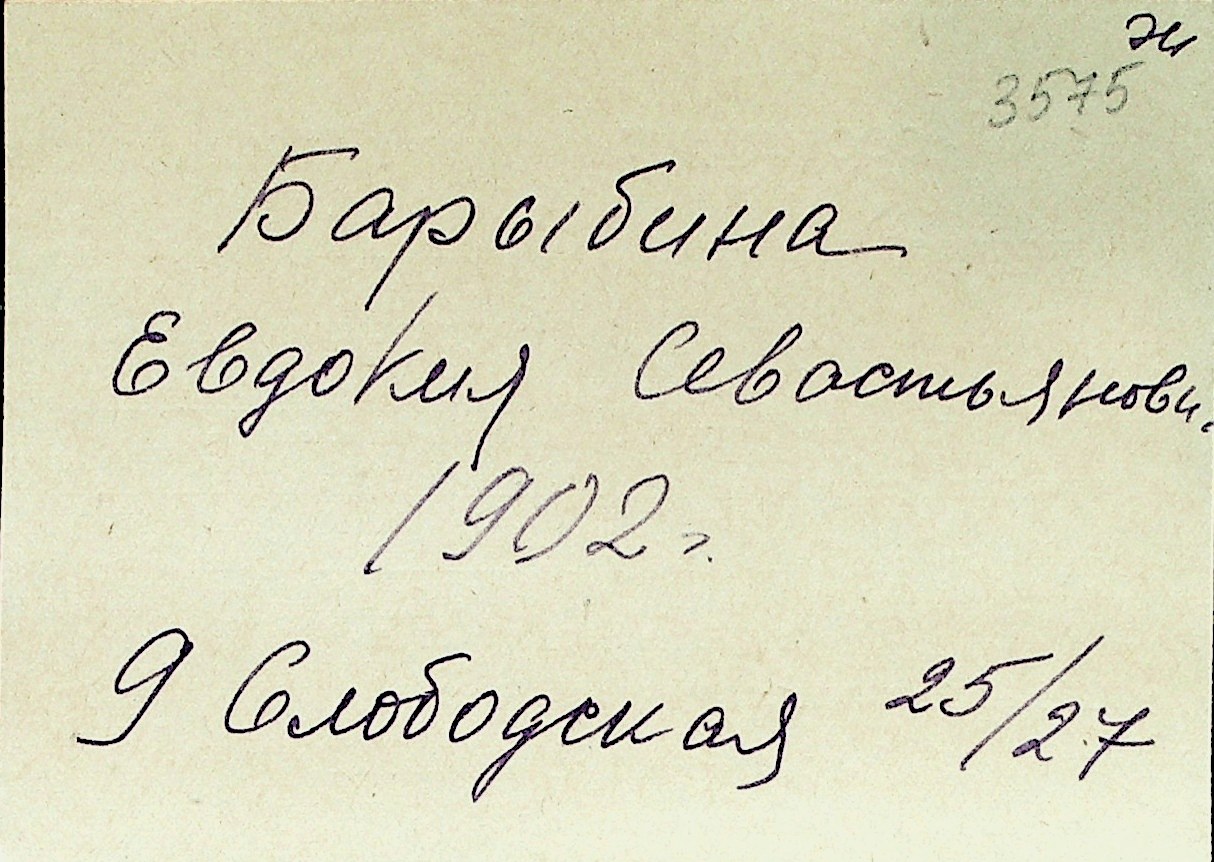 ж
3575
Барыбина
Евдокия Севастьянови.
1902 г.
9 Слободская 25/27